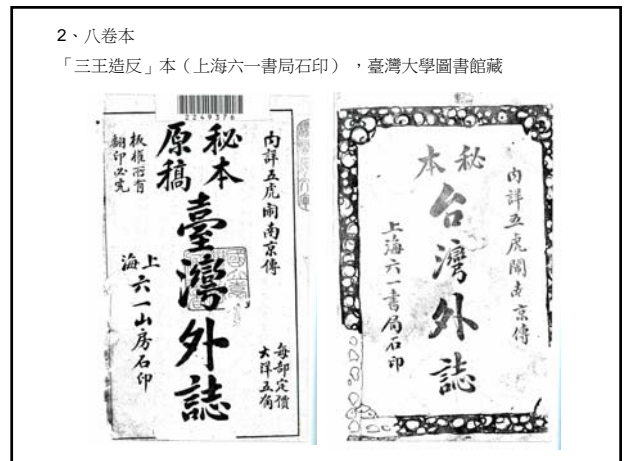 2、八卷本
「三王造反」本（上海六一書局石印），臺灣大學圖書館藏
2249376
內詳五虎鬧南京傳
秘本
原稿
臺灣外誌
每部定價
大洋五角
板權所有
翻印必究
上海
六一山房石印
內詳五虎鬧南京傳
秘本
台灣外誌
上海六一書局石印